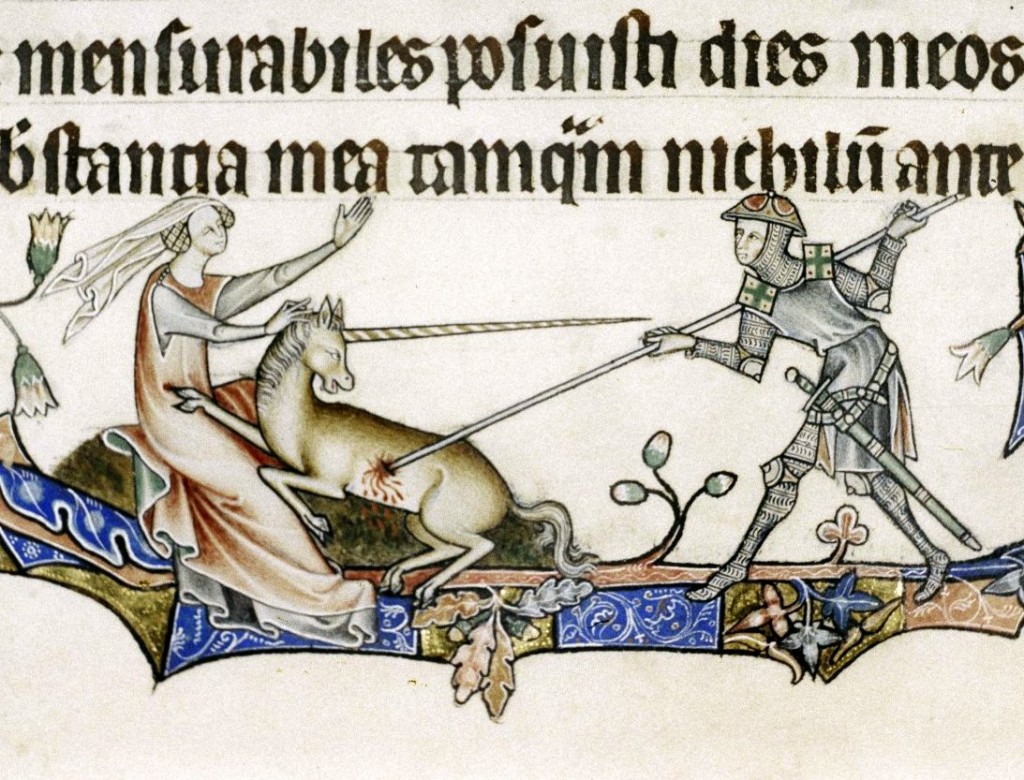 menſurabiles poſuiſti dies meos
ſtantia mea tamqm nichilū ante